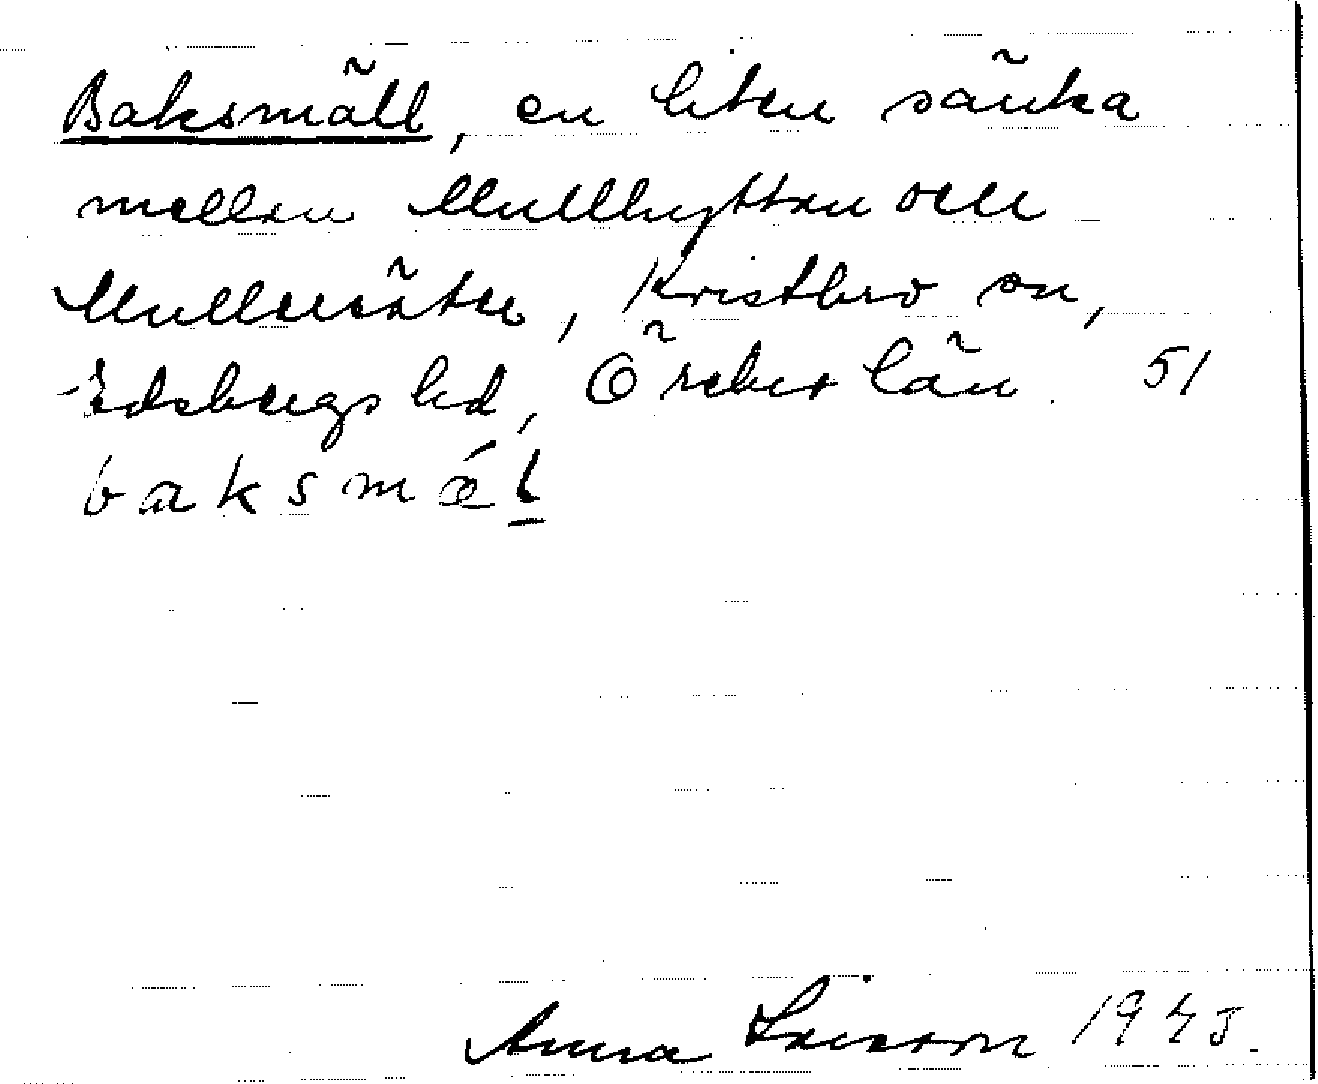 Baksmäll, en liten sänka
mellan Mullhyttan och
Mullersäter, Kvistbro sn,
Edsbergs hd, Örebro län. 51
baksmäl
Anna 1943.